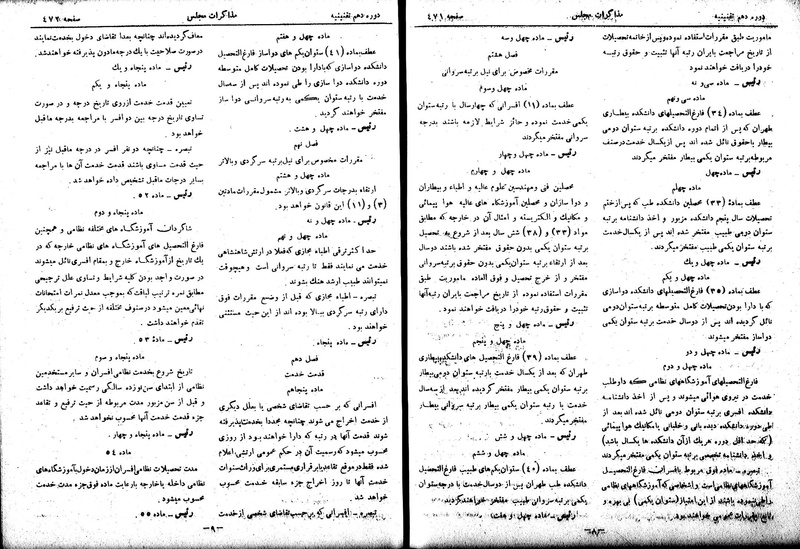 دوره دهم تقنینیه
مذاکرات مجلس
صفحه ۴۷۱
ماموریت طبق مقررات استفاده نموده وپس از خاتمه تحصیلات
از تاریخ مراجعت بایران رتبه آنها تثبیت و حقوق رتبه
خود را دریافت خواهند نمود
رئیس ـ ماده سی و نه
ماده سی ونهم
عطف بماده (۳۴) فارغ التحصیلهای دانشکده بیطاری
طهران که پس از اتمام دوره دانشکده برتبه ستوان دومی
بیطار باحقوق نائل شده اند پس از یکسال خدمت درصنف
مربوطه برتبه ستوان یکمی بیطار مفتخر میگردند
رئیس ـ ماده چهل
ماده چهلم
عطف بماده (۳۳) محصلین دانشکده طب که پس از ختم
تحصیلات سال پنجم دانشکده مزبور و اخذ دانشنامه برتبه
ستوان دومی طبیب مفتخر شده اند پس از یکسال خدمت
برتبه ستوان یکمی طبیب مفتخر میگردند.
رئیس ـ ماده چهل ویك
ماده چهل و یکم
عطف بماده (۳۵) فارغ التحصیلهای دانشکده دواسازی
که با دارا بودن تحصیلات کامل متوسطه برتبه ستوان دومی
نائل گردیده اند پس از دوسال خدمت برتبه ستوان یکمی
دواساز مفتخر میشوند
رئیس ـ ماده چهل و دو
ماده چهل و دوم
فارغ التحصیلهای آموزشگاههای نظامی که داوطلب
خدمت در نیروی هوائی میشوند و پس از اخذ دانشنامه
دانشکده افسری برتبه ستوان دومی نائل شده اند بعد از
طی دوره دانشکده دیده بانی و خلبانی یا مکانیك هوا پیمائی
(که حد اقل دوره هریك از آن دانشکده ها یکسال باشد)
و اخذ دانشنامه تخصصی برتبه ستوان یکمی مفتخر میگردند
تبصره ـ ماده فوق مربوط بافسران فارغ التحصیل
آموزشگاههای نظامی است و اشخاصی که آموزشگاههای نظامی
را طی ننموده باشند از این امتیاز (ستوان یکمی) بی بهره و
رئیس ـ ماده چهل وسه
فصل هشتم
مقررات مخصوص برای نیل برتبه سروانی
ماده چهل وسوم
عطف بماده (۱۱) افسرانی که چهارسال با رتبه ستوان
یکمی خدمت نموده و حائز شرایط لازمه باشند بدرجه
سروانی مفتخر میگردند
رئیس ـ ماده چهل وچهار
ماده چهل و چهارم
محصلین فنی ومهندسین علوم عالیه و اطباء و بیطاران
و دوا سازان و محصلین آموزشگاه های عالیه هوا پیمائی
و مکانیك و الکتریسته و امثال آن در خارجه که مطابق
مواد (۳۳) و (۳۸) شش سال بعد از شروع به تحصیل
برتبه ستوان یکمی بدون حقوق مفتخر شده باشند دوسال
بعد از ارتقاء برتبه ستوان یکمی بدون حقوق برتبه سروانی
مفتخر و از خرج تحصیل و فوق العاده ماموریت طبق
مقررات استفاده نموده از تاریخ مراجعت بایران رتبه آنها
تثبیت و حقوق رتبه خود را دریافت خواهند نمود.
رئیس ـ ماده چهل و پنج
ماده چهل و پنجم
عطف بماده (۳۹) فارغ التحصیل های دانشکده بیطاری
طهران که بعد از یکسال خدمت با رتبه ستوان دومی بیطار
برتبه ستوان یکمی مفتخر گردیده اند بعد از سه سال
خدمت با رتبه ستوان یکمی بیطار برتبه سروانی بیطار
مفتخر میگردند.
رئیس ـ ماده چهل و شش
ماده چهل و ششم
عطف بماده (۴۰) ستوان یکم های طبیب فارغ التحصیل
دانشکده طب طهران پس از دوسال خدمت با درجه ستوان
یکمی برتبه سروانی طبیب مفتخر خواهند گردید
رئیس ـ ماده چهل و هفت
ـ ۸ ـ
دوره دهم تقنینیه
مذاکرات مجلس
صفحه ۴۷۲
ماده چهل و هفتم
عطف بماده (۴۱) ستوان یکم های دواساز فارغ التحصیل
دانشکده دواسازی که با دارا بودن تحصیلات کامل متوسطه
دوره دانشکده دوا سازی را طی نموده اند پس از سه سال
خدمت با رتبه ستوان یکمی به رتبه سروانی دوا ساز
مفتخر خواهند گردید
رئیس ـ ماده چهل و هشت .
فصل نهم
مقررات مخصوص برای نیل برتبه سرگردی وبالاتر
ماده چهل و هشتم
ارتقاء بدرجات سرگردی و بالاتر مشمول مقررات مادتین
(۳) و (۱۱) این قانون خواهد بود.
رئیس ـ ماده چهل و نه
ماده چهل و نهم
حد اکثر ترقی اطباء مجازی که فعلا در ارتش شاهنشاهی
خدمت می نمایند فقط تا رتبه سروانی است و هیچوقت
نمیتوانند طبیب ارشد هنك بشوند .
تبصره ـ اطباء مجازی که قبل از وضع مقررات فوق
دارای رتبه سرگردی ببالا بوده اند از این حیث مستثنی
خواهند بود .
رئیس ـ ماده پنجاه .
فصل دهم
قدمت خدمت
ماده پنجاهم
افسرانی که بر حسب تقاضای شخصی یا بعلل دیگری
از خدمت اخراج می شوند چنانچه مجددا بخدمت پذیرفته
شوند قدمت آنها در رتبه که دارا خواهند بود از روزی
محسوب میشود که رسمیت آن در حکم عمومی ارتشی اعلام
شده فقط در موقع تقاعد یا برقراری مستمری برای وراث سنوات
خدمت آنها تا روز اخراج جزء سابقه خدمت محسوب
خواهد شد .
تبصره ـ افسرانی که بر حسب تقاضای شخصی از خدمت
معاف گردیده اند چنانچه بعدا تقاضای دخول بخدمت نمایند
در صورت صلاحیت با یك درجه مادون پذیرفته خواهند شد.
رئیس ـ ماده پنجاه و یك
ماده پنجاه و یکم
تعیین قدمت خدمت ازروی تاریخ درجه و در صورت
تساوی تاریخ درجه بین دو افسر با مراجعه بدرجه ماقبل
خواهد بود
تبصره ـ چنانچه دو نفر افسر در درجه ماقبل نیز از
حیث قدمت مساوی باشند قدمت خدمت آن ها با مراجعه
بسایر درجات ماقبل تشخیص داده خواهد شد.
رئیس ـ ماده ۵۲ .
ماده پنجاه و دوم
شاگردان آموزشگاه های مختلفه نظامی و همچنین
فارغ التحصیل های آموزشگاه های نظامی خارجه که در
یك تاریخ از آموزشگاه خارج و بمقام افسری نائل میشوند
در صورت واجد بودن کلیه شرایط و تساوی علل ترجیحی
مطابق نمره ترتیب لیاقت که بموجب معدل نمرات امتحانات
نهائی معین میشود درصنوف مختلفه از حیث ترفیع بر یکدیگر
تقدم خواهند داشت .
رئیس ـ مادهٔ ۵۳ .
ماده پنجاه و سوم
تاریخ شروع بخدمت نظامی افسران و سایر مستخدمین
نظامی از ابتدای سن نوزده سالگی رسمیت خواهد داشت
و قبل از سن مزبور مدت مربوطه از حیث ترفیع و تقاعد
جزء قدمت خدمت آنها محسوب نخواهد شد.
رئیس ـ ماده پنجاه و چهار.
ماده ۵۴
مدت تحصیلات نظامی افسران اززمان دخول بآموزشگاههای
نظامی داخله یا خارجه با رعایت ماده فوق جزء مدت خدمت
محسوب میشود .
رئیس ـ ماده ۵۵ .
ـ ۹ ـ